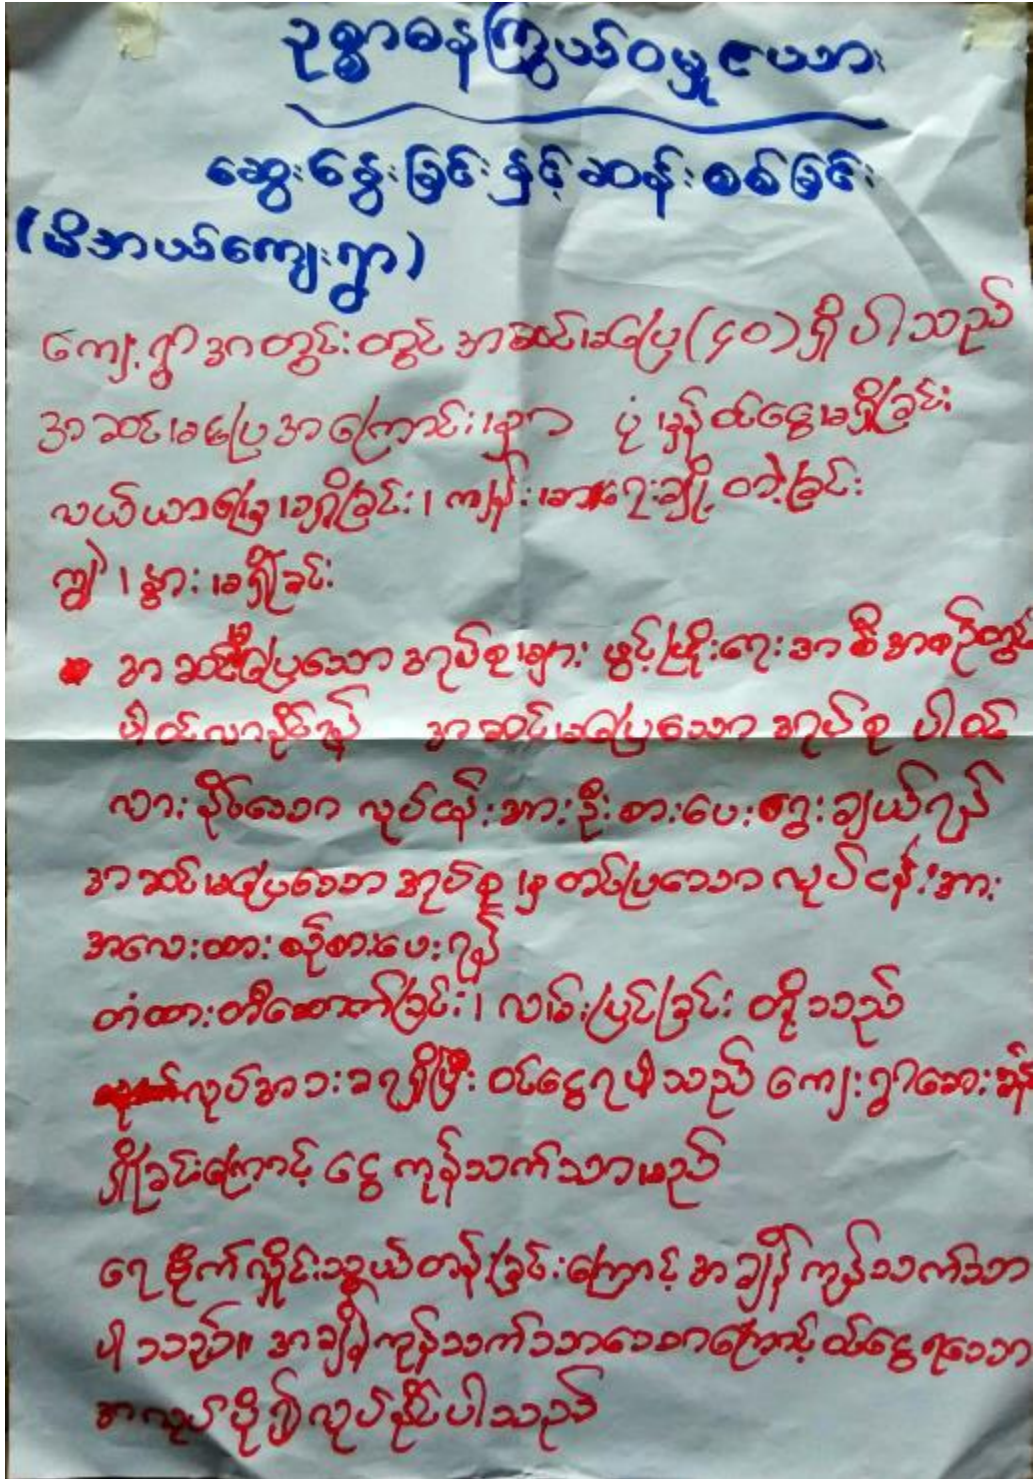 ဥစ္စာဓနကြွယ်ဝမှုဇယား
ဆွေးနွေးခြင်းနှင့်ဆန်းစစ်ခြင်း
(မီအယ်ကျေးရွာ)
ကျေးရွာအတွင်းတွင် အဆင်မပြေ(၄၀)ရှိပါသည်
အဆင်မပြေအကြောင်းမှာ ပုံမှန်ဝင်ငွေမရှိခြင်း
လယ်ယာမြေမရှိခြင်း၊ ကျန်းမာရေးချို့တဲ့ခြင်း
ကျွဲ၊ နွားမရှိခြင်း
အဆင်မပြေသောအုပ်စုများ ဖွင့်ဖြိုးရေးအစီအစဉ်တွင်
ပါဝင်လာနိုင်ရန် အဆင်မပြေသောအုပ်စု ပါဝင်
လာနိုင်သော လုပ်ငန်းအားဦးစားပေးရွေးချယ်ရန်
အဆင်မပြေသောအုပ်စုမှ တင်ပြသော လုပ်ငန်းအား
အလေးထားစဉ်စားပေးရန်
တံထားတံဆောက်ခြင်း၊ လမ်းပြင်ခြင်း တို့သည်
လုပ်အားခရရှိပြီး ဝင်ငွေရပါသည် ကျေးရွာဆေးခန်း
ရှိခြင်းကြောင့် ငွေကုန်သက်သာမည်
ရေပိုက်လှိုင်းသွယ်တန်းခြင်းကြောင့် အချိန်ကုန်သက်သာ
ပါသည်။ အချိန်ကုန်သက်သာသောကြောင့် ဝင်ငွေရသော
အလုပ်ပို၍လုပ်နိုင်ပါသည်